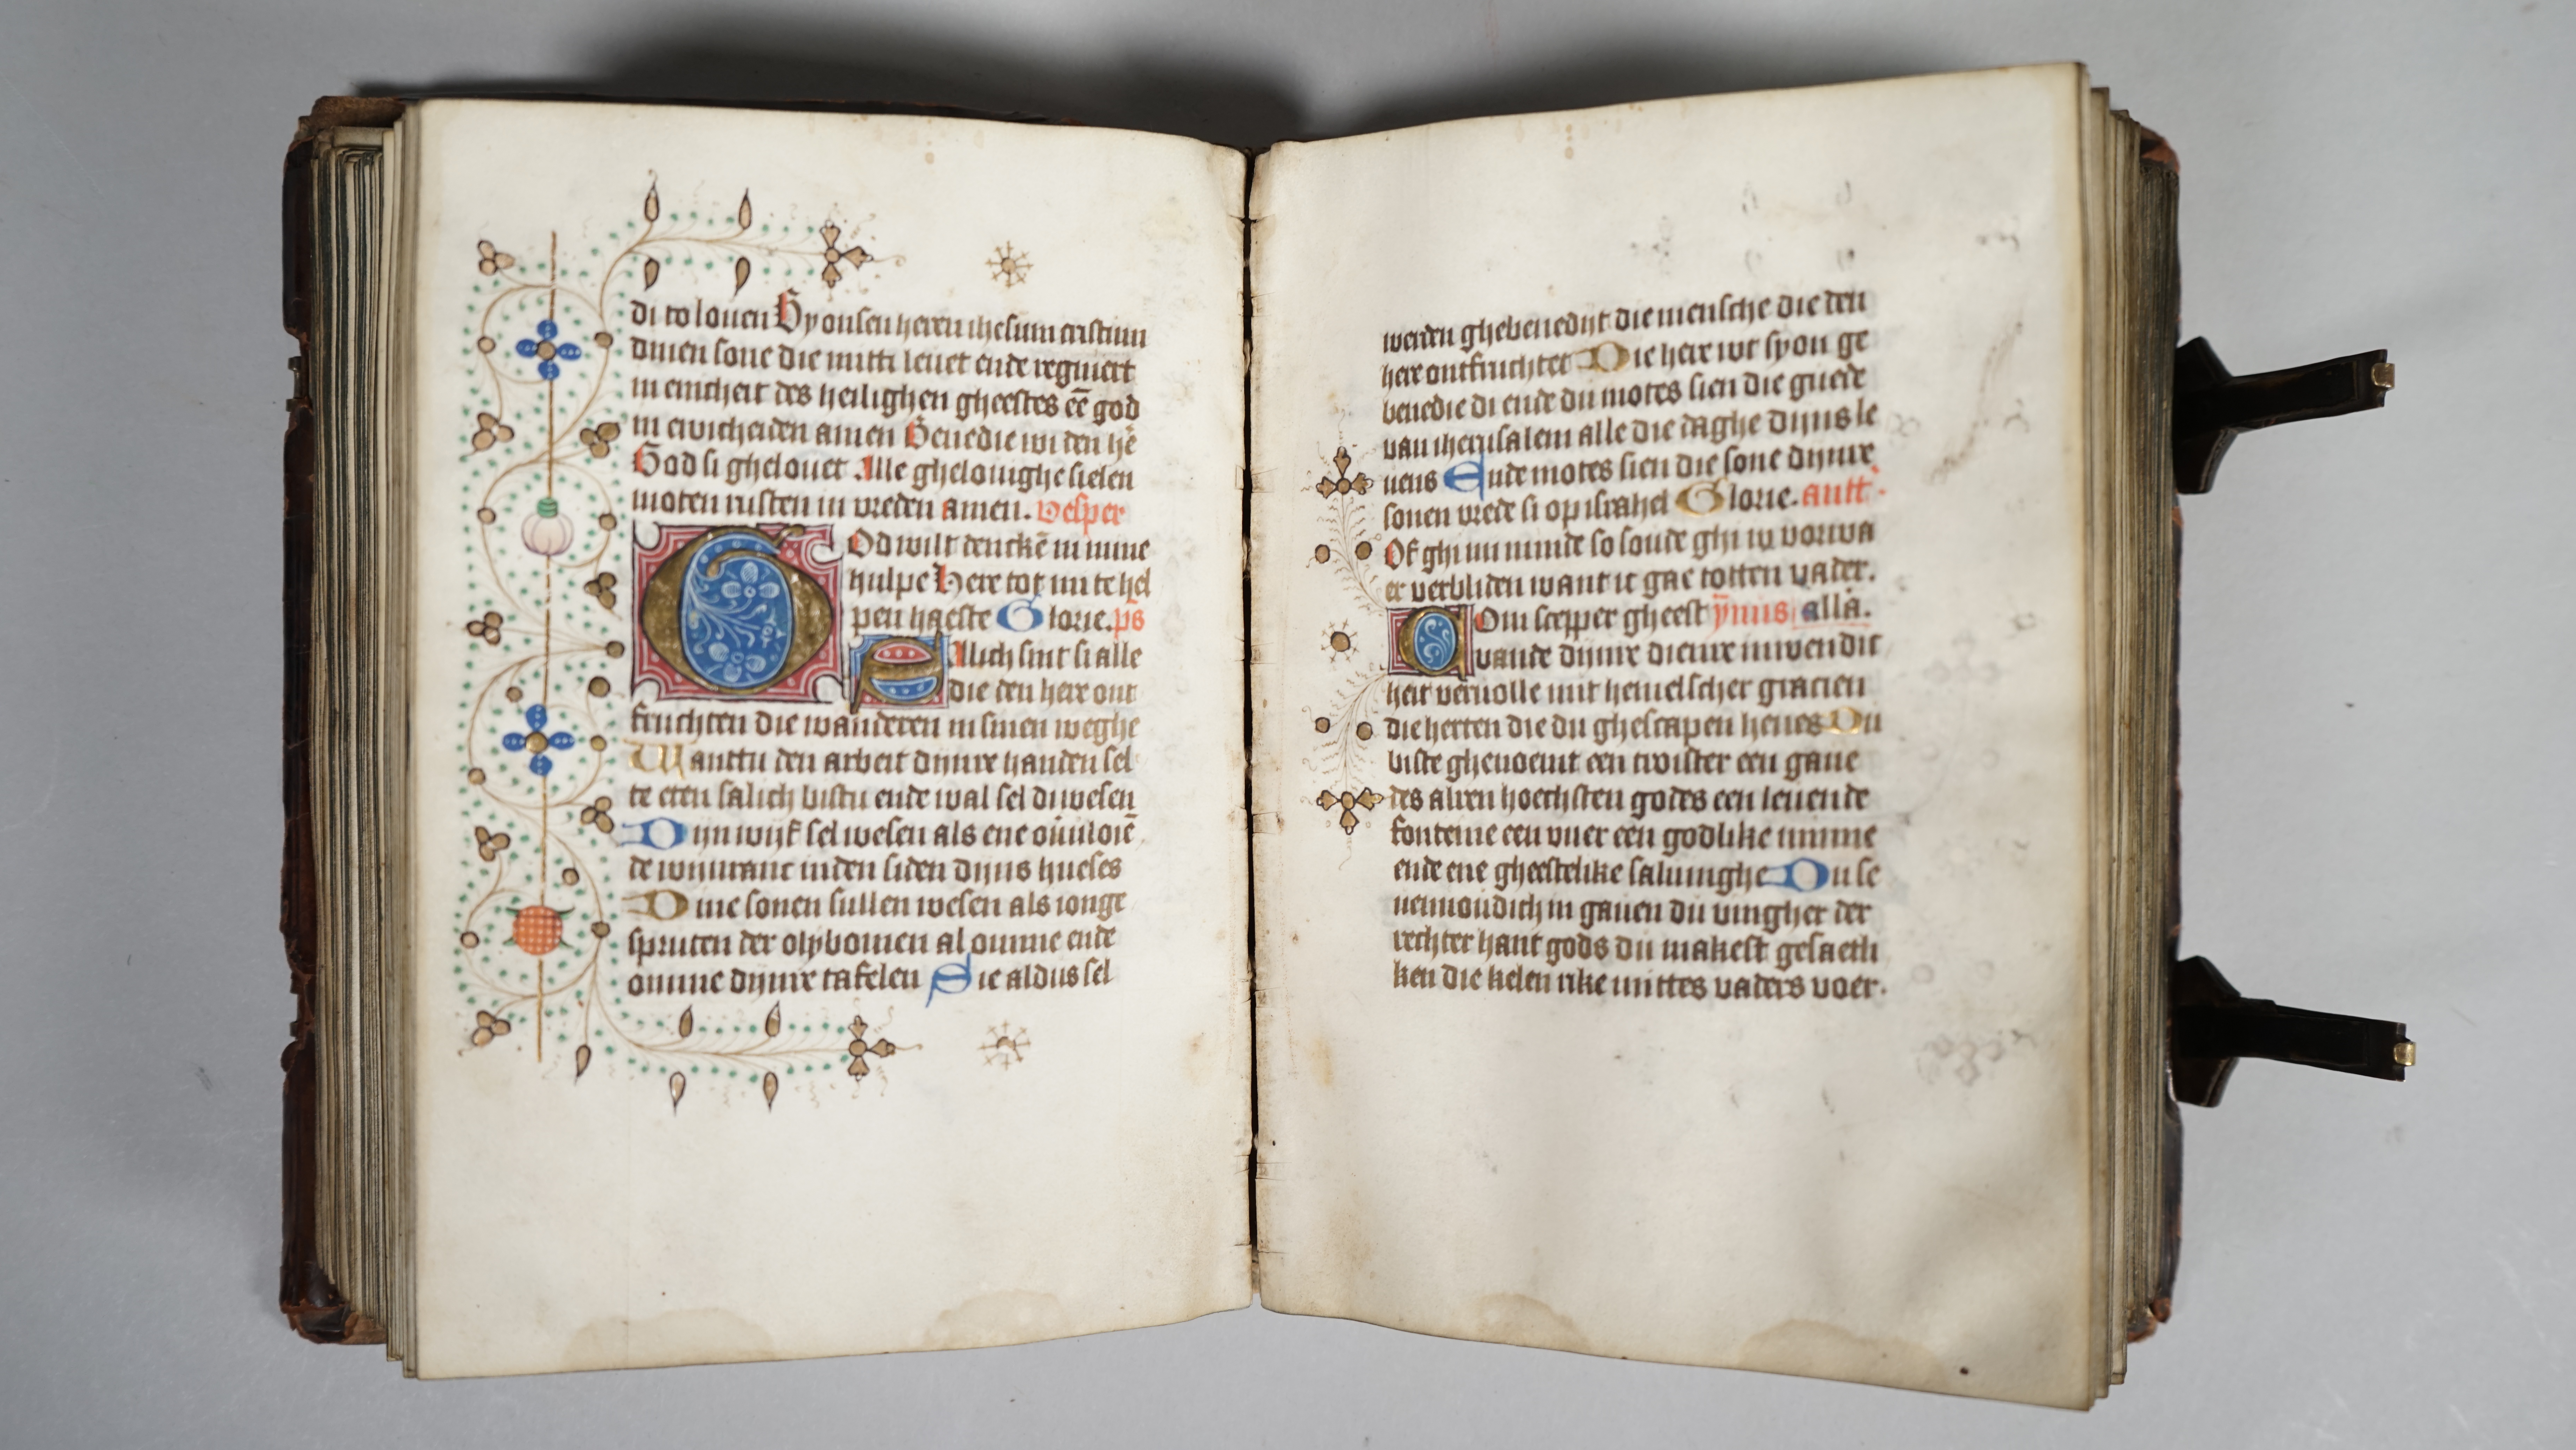 di to louen By onsen heren ihesum cristum
dinen sone die mitti leuet ende regniert
in eincheit des heilighen gheestes eē god
in ewicheiden amen Benedie wi den hē
God si ghelouet Alle ghelouighe sielen
moten rusten in vreden amen. Vesper
God wilt dencken in mine
hulpe Here tot mi te hel
pen haeste Glorie. ps
Salich sint si alle
die den here ont
fruchten die wanderen in sinen weghe
Wanttu den arbeit dijnre handen sel
te eten salich bistu ende wal sel di wesen
Dijn wijf sel wesen als ene
de wijnranc inden siden dijns hueses
Dine sonen sullen wesen als ionge
spruten der olybomen al omme ende
omme dijnre tafelen Sie aldus sel
werden ghebenedijt die mensche die den
here ontfruchtet Die here wt syon ge
benedie di ende du motes sien die guede
van iherusalem alle die daghe dijns le
uens Ende motes sien die sone dijnre
sonen vrede si op israhel Glorie. antt
Of ghi mi minde so soude ghi iu vorwa
er verbliden want ic gae totten vader.
alla.
Com scepper gheest ymus
vande dijnre dienre inwendic
heit veruolle mit hemelscher gracien
die herten die du ghescapen heues Du
biste ghenoemt een troister een gaue
des alren hoechsten godes een leuende
fonteine een vuer een godlike minne
ende ene gheestelike saluinghe Du se
uenuoudich in gauen du vingher der
rechter hant gods du makest
ken die kelen rike mittes vaders voer.